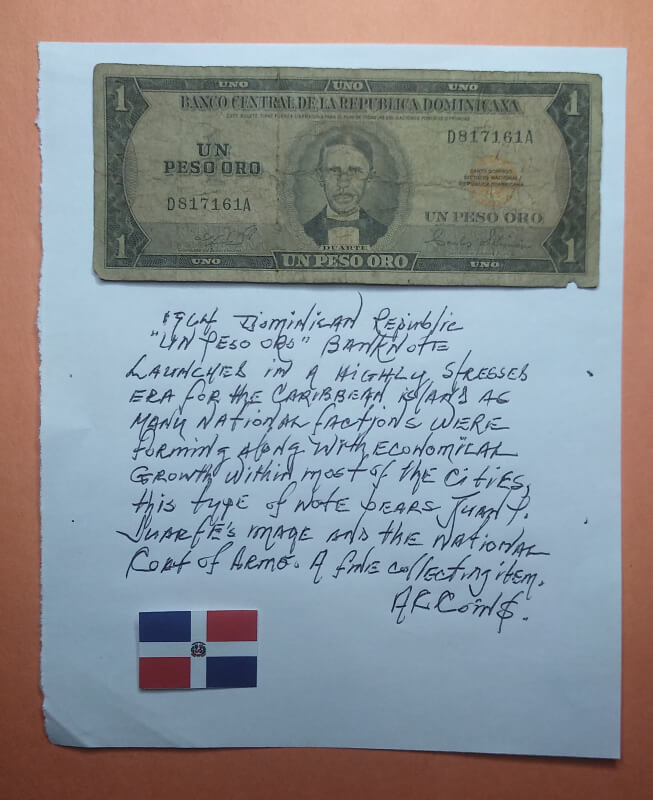 UNO UNO UNO
1 BANCO CENTRAL DE LA REPUBLICA DOMINICANA 1
ESTE BILLETE TIENE FUERZA LIBERATORIA PARA EL PAGO DE TODAS LAS OBLIGACIONES PUBLICAS O PRIVADAS
D817161A
UN
PESO ORO
SANTO DOMINGO
DISTRITO NACIONAL
REPUBLICA DOMINICANA
D817161A
UN PESO ORO
DUARTE
1 UNO UN PESO ORO UNO 1
1964 Dominican Republic
"UN PESO ORO" BANKNOTE
LAUNCHED in A HIGHLY, STRESSED
ERA FOR the CARIBBEAN island AS
MANY NATIONAL FACTIONS WERE
forming Along With ECONOMICAL
GROWTH, Within most of the Cities,
this type of note bears Juan P.
Duarte's image and the NATIONAL
Coat of Arms. A fine collecting item.
ARCoin$.